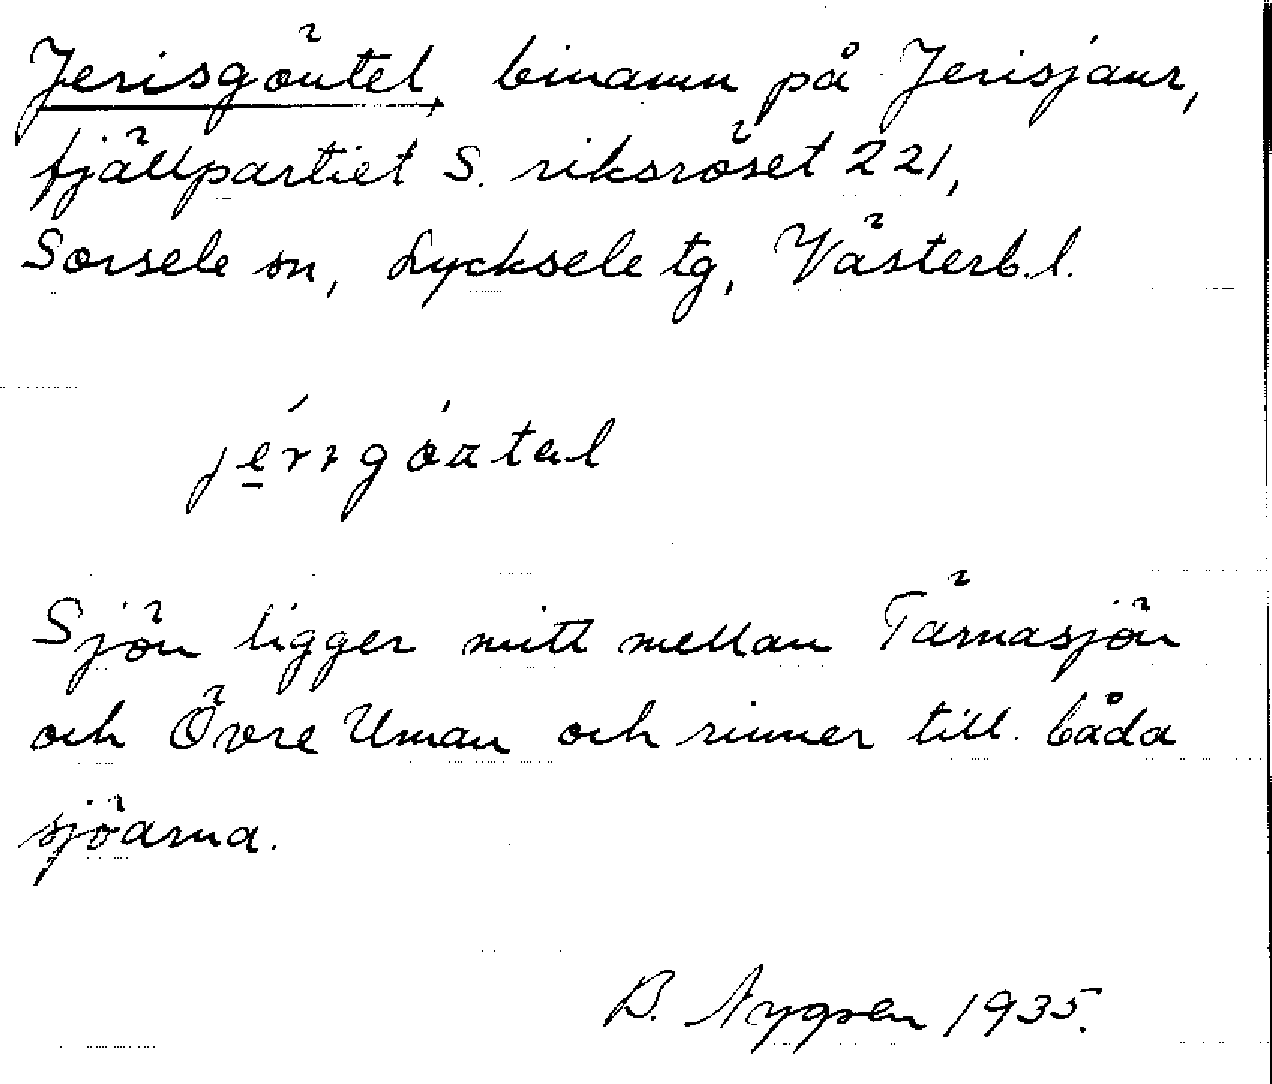 Jerisgöutel, binamn på Jerisjaur,
fjällpartiet S. riksröset 221,
Sorsele sn, Lycksele tg, Västerb.l.
Sjön ligger mitt mellan Tärnasjön
och Övre Uman och rinner till båda
sjöarna.
B. Nygren 1935.